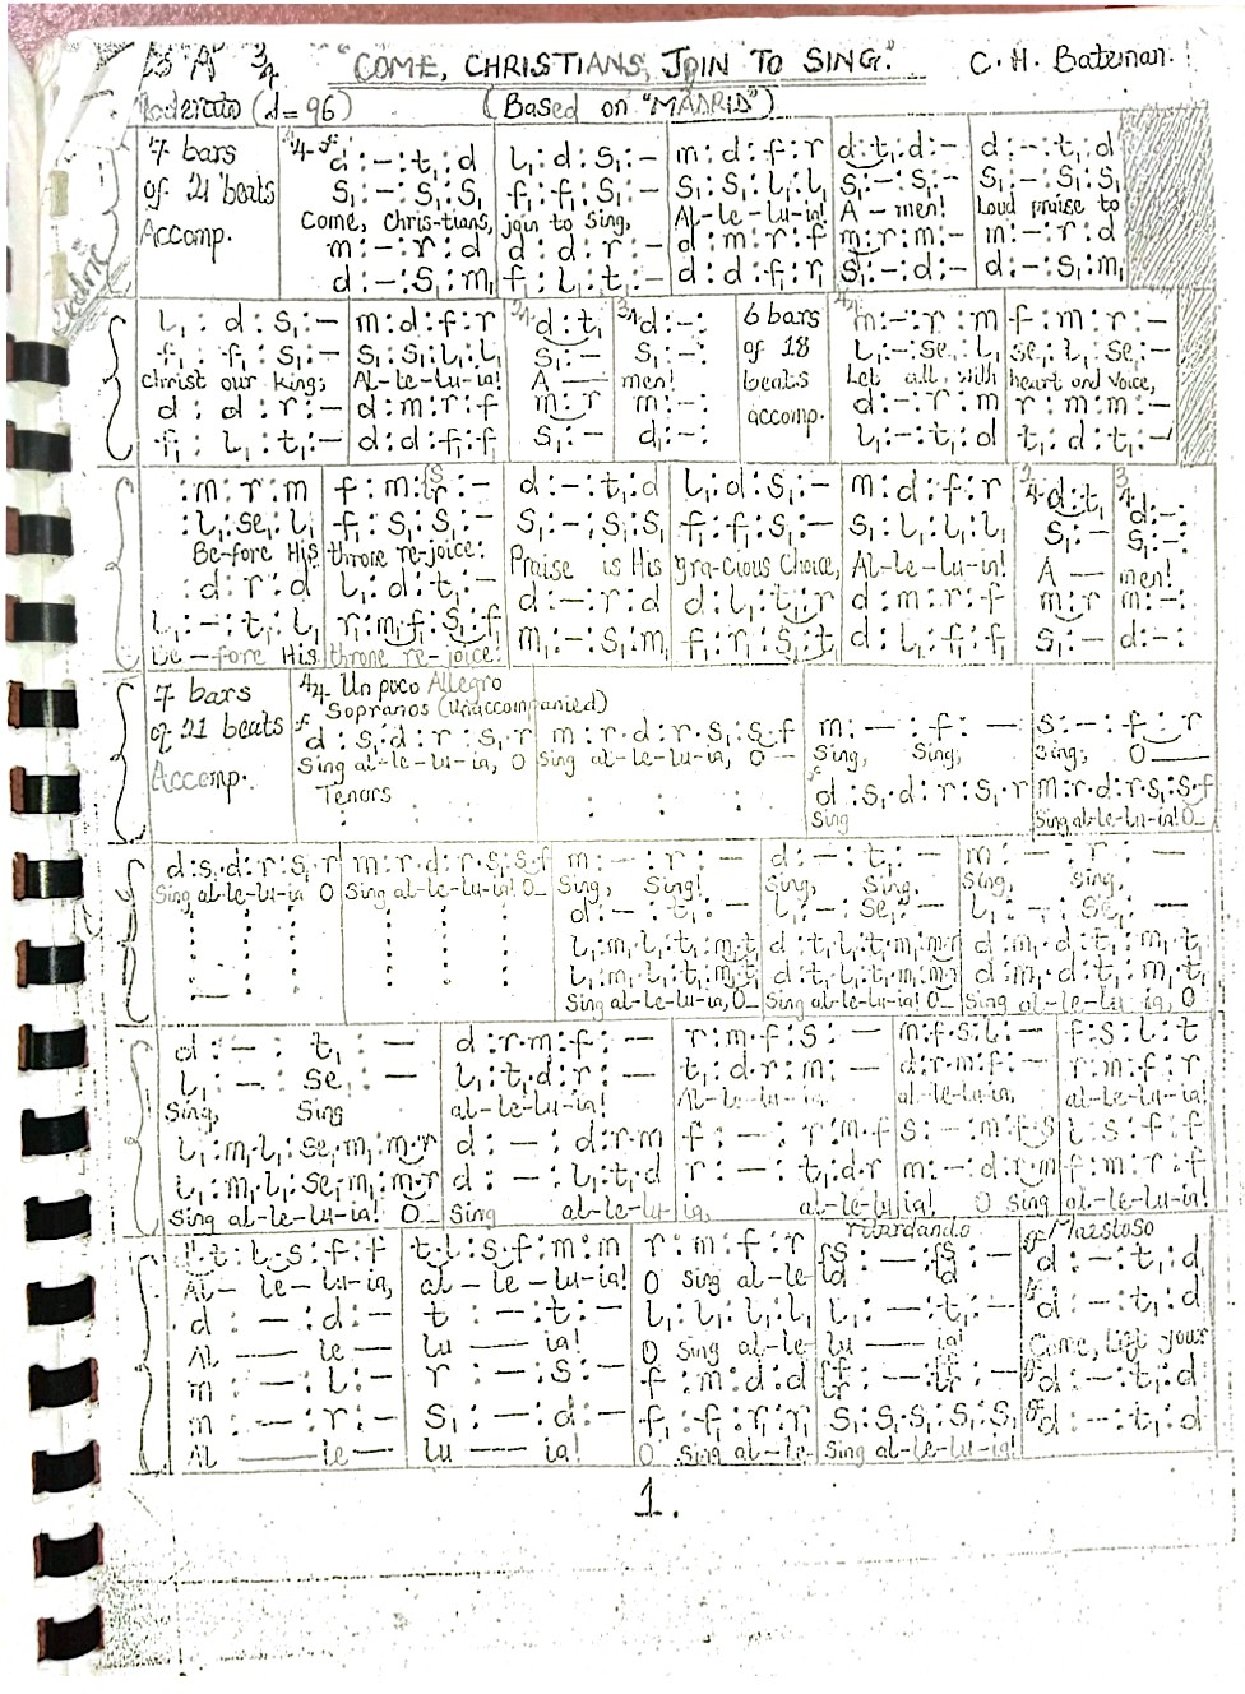 "COME, CHRISTIANS, JOIN TO SING." C. H. Bateman.
(Based on "MADRID")
7 bars
d : – : t₁ : d | l₁ : d : s₁ : – | m : d : f : r | d : t₁ : d : – | d : – : t₁ : d
of 21 beats
s₁ : – : s₁ : s₁ | f₁ : f₁ : s₁ : – | s₁ : s₁ : l₁ : l₁ | s₁ : – : s₁ : – | s₁ : – : s₁ : s₁
Accomp.
Come, Chris-tians, join to sing, Al-le-lu-ia! A – men! Loud praise to
m : – : r : d | d : d : r : – | d : m : r : f | m : r : m : – | m : – : r : d
d : – : s₁ : m₁ | f₁ : l₁ : t₁ : – | d : d : f₁ : r₁ | s₁ : – : d : – | d : – : s₁ : m₁
l₁ : d : s₁ : – | m : d : f : r | d : t₁ | d : – : | 6 bars | m : – : r : m | f : m : r : –
f₁ : f₁ : s₁ : – | s₁ : s₁ : l₁ : l₁ | s₁ : – | s₁ : – : | of 18 | l₁ : – : se₁ : l₁ | se₁ : l₁ : se₁ : –
Christ our king; Al-le-lu-ia! A — men! beats Let all, with heart and voice,
d : d : r : – | d : m : r : f | m : r | m : – : | accomp. | d : – : r : m | r : m : m : –
f₁ : l₁ : t₁ : – | d : d : f₁ : f₁ | s₁ : – | d₁ : – : | l₁ : – : t₁ : d | t₁ : d : t₁ : –
: m : r : m | f : m : r : – | d : – : t₁ : d | l₁ : d : s₁ : – | m : d : f : r | d : t₁ | d : – :
: l₁ : se₁ : l₁ | f₁ : s₁ : s₁ : – | s₁ : – : s₁ : s₁ | f₁ : f₁ : s₁ : – | s₁ : l₁ : l₁ : l₁ | s₁ : – | s₁ : – :
Be-fore His throne re-joice: Praise is His gra-cious Choice, Al-le-lu-ia! A — men!
: d : r : d | l₁ : d : t₁ : – | d : – : r : d | d : l₁ : t₁ : r | d : m : r : f | m : r | m : – :
l₁ : – : t₁ : l₁ | r₁ : m₁ . f₁ : s₁ . f₁ | m₁ : – : s₁ : m₁ | f₁ : r₁ : s₁ : t₁ | d : l₁ : f₁ : f₁ | s₁ : – | d : – :
Be – fore His throne re-joice:
7 bars
4/4 Un poco Allegro
Sopranos (Unaccompanied)
of 21 beats
d : s₁ . d : r : s₁ . r | m : r . d : r . s₁ : s . f | m : – : f : – | s : – : f : r
Sing al-le-lu-ia, O Sing al-le-lu-ia, O – Sing, Sing, Sing, O —
Accomp.
Tenors
d : s₁ . d : r : s₁ . r | m : r . d : r . s₁ : s . f
Sing Sing al-le-lu-ia! O –
d : s₁ . d : r : s₁ . r | m : r . d : r . s₁ : s . f | m : – : r : – | d : – : t₁ : – | m : – : r : –
Sing al-le-lu-ia O Sing al-le-lu-ia! O – Sing, Sing! Sing, Sing, Sing, Sing,
d : – : t₁ : – | l₁ : – : se₁ : – | l₁ : – : se₁ : –
l₁ : m₁ . l₁ : t₁ : m₁ . t₁ | d : t₁ . l₁ : t₁ . m₁ : m . r | d : m₁ . d : t₁ : m₁ . t₁
l₁ : m₁ . l₁ : t₁ : m₁ . t₁ | d : t₁ . l₁ : t₁ . m₁ : m . r | d : m₁ . d : t₁ : m₁ . t₁
Sing al-le-lu-ia, O – Sing al-le-lu-ia! O – Sing al-le-lu-ia, O
d : – : t₁ : – | d : r . m : f : – | r : m . f : s : – | m : f . s : l : – | f : s : l : t
l₁ : – : se₁ : – | l₁ : t₁ . d : r : – | t₁ : d . r : m : – | d : r . m : f : – | r : m : f : r
Sing, Sing al-le-lu-ia! Al-le-lu-ia al-le-lu-ia, al-le-lu-ia!
l₁ : m₁ . l₁ : se₁ . m₁ : m . r | d : – : d : r . m | f : – : r : m . f | s : – : m : f . s | l : s : f : f
l₁ : m₁ . l₁ : se₁ . m₁ : m . r | d : – : l₁ : t₁ . d | r : – : t₁ : d . r | m : – : d : r . m | f : m : r : f
Sing al-le-lu-ia! O – Sing al-le-lu-ia, al-le-lu-ia! O Sing al-le-lu-ia!
ritardando Maestoso
d¹ . t : l . s : f : f | t . l : s . f : m : m | r : m : f : r | s : – : s : – | d : – : t₁ : d
Al – le – lu-ia, al – le – lu-ia! O Sing al-le-
d : – : d : – | t : – : t : – | l₁ : l₁ : l₁ : l₁ | l₁ : – : t₁ : – | d : – : t₁ : d
Al — le — lu — ia! O Sing al-le-lu — ia! Come, lift your
m : – : l : – | r : – : s : – | f : m : d : d | d : – : t₁ : d
m : – : r : – | s₁ : – : d : – | f₁ : f₁ : r₁ : r₁ | s₁ : s₁ . s₁ : s₁ : s₁ | d : – : t₁ : d
Al — le — lu — ia! O Sing al-le- Sing al-le-lu-ia!
1.